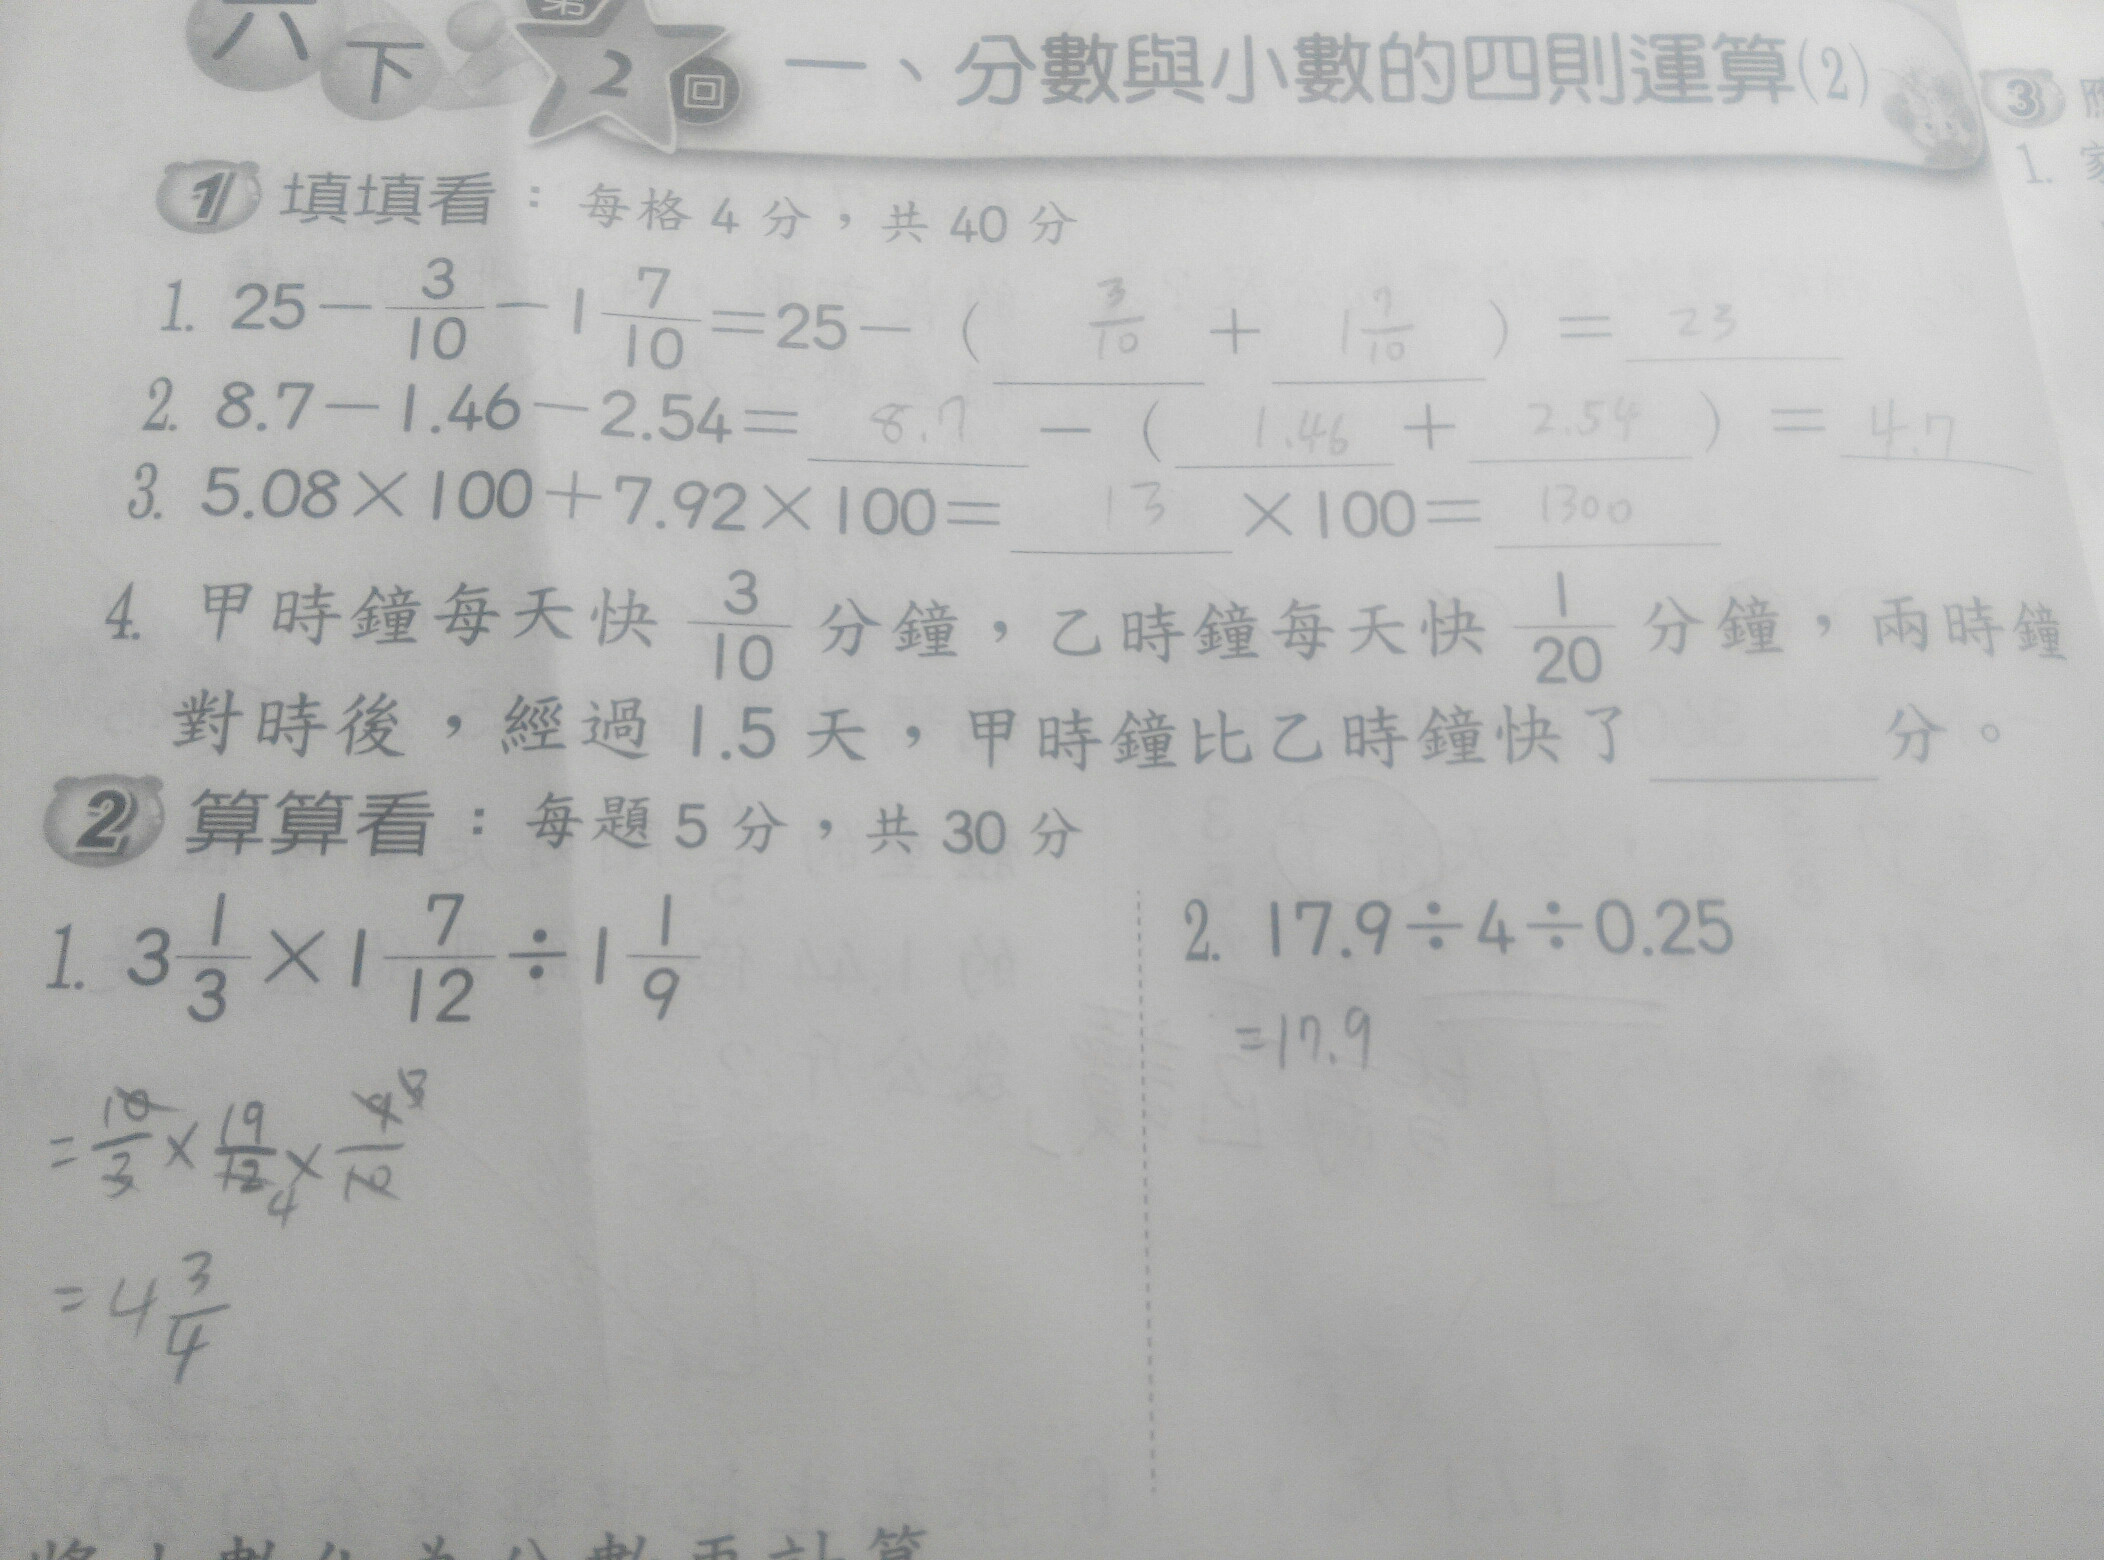 六下 第2回 一、分數與小數的四則運算(2)
1 填填看：每格 4 分，共 40 分
1. 25－3/10－1 7/10＝25－（ 3/10 ＋ 1 7/10 ）＝ 23
2. 8.7－1.46－2.54＝ 8.7 －（ 1.46 ＋ 2.54 ）＝ 4.7
3. 5.08×100＋7.92×100＝ 13 ×100＝ 1300
4. 甲時鐘每天快 3/10 分鐘，乙時鐘每天快 1/20 分鐘，兩時鐘
對時後，經過 1.5 天，甲時鐘比乙時鐘快了 分。
2 算算看：每題 5 分，共 30 分
1. 3 1/3×1 7/12÷1 1/9
= 10/3 × 19/12 4 × 9 3/10
= 4 3/4
2. 17.9÷4÷0.25
=17.9
3
1. 家